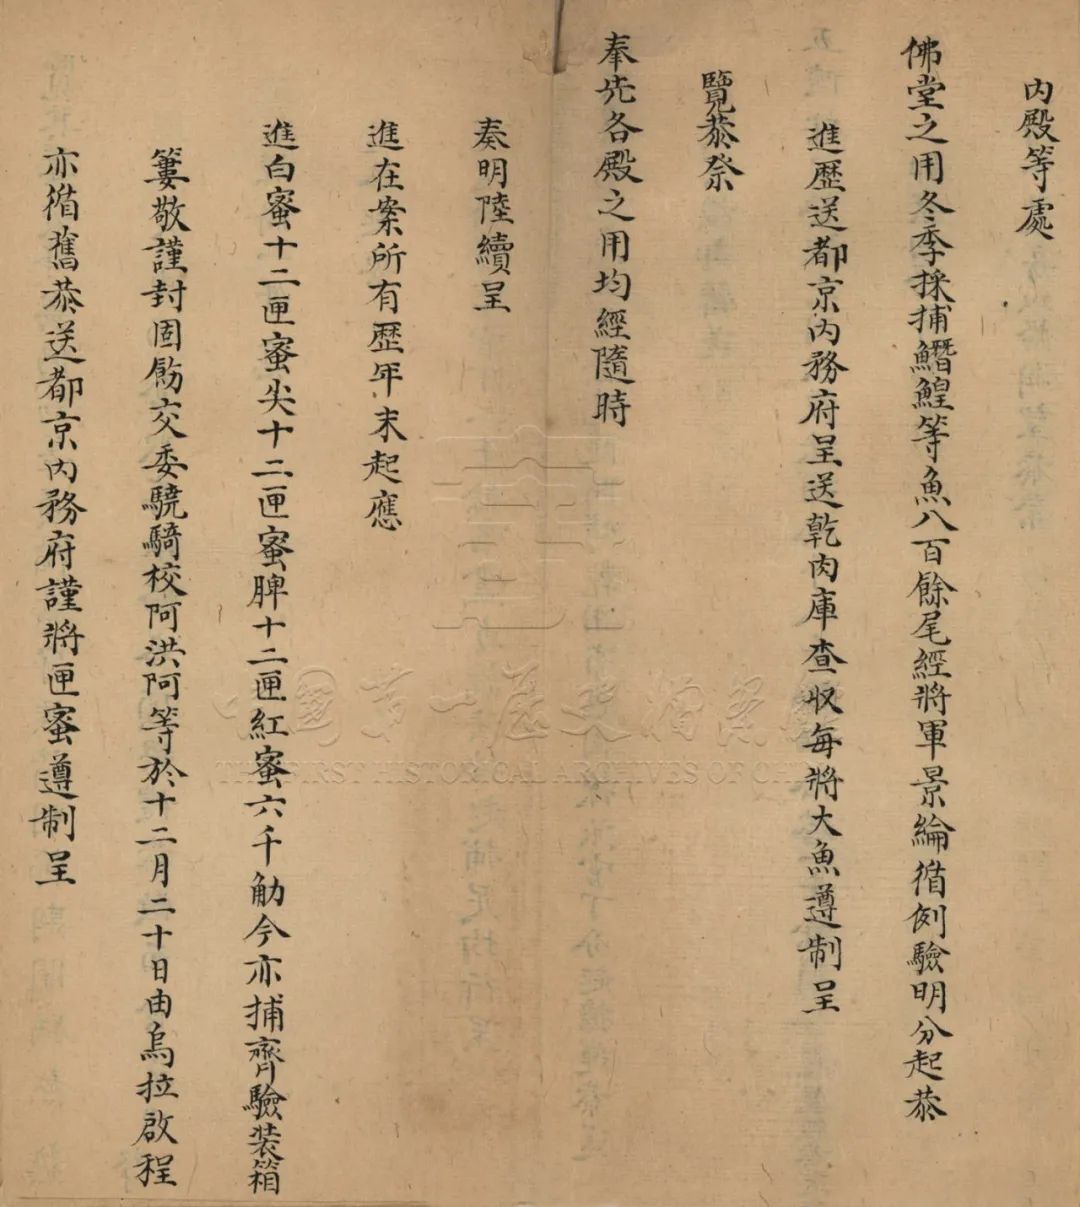 內殿等處
佛堂之用冬季採捕鱘鰉等魚八百餘尾經將軍景綸循例驗明分起恭
進歷送都京內務府呈送乾肉庫查收每將大魚遵制呈
覽恭祭
奉先各殿之用均經隨時
奏明陸續呈
進在案所有歷年末起應
進白蜜十二匣蜜尖十二匣蜜脾十二匣紅蜜六千觔今亦捕齊驗裝箱
簍敬謹封固飭交委驍騎校阿洪阿等於十二月二十日由烏拉啟程
亦循舊恭送都京內務府謹將匣蜜遵制呈
中國第一歷史檔案館
THE FIRST HISTORICAL ARCHIVES OF